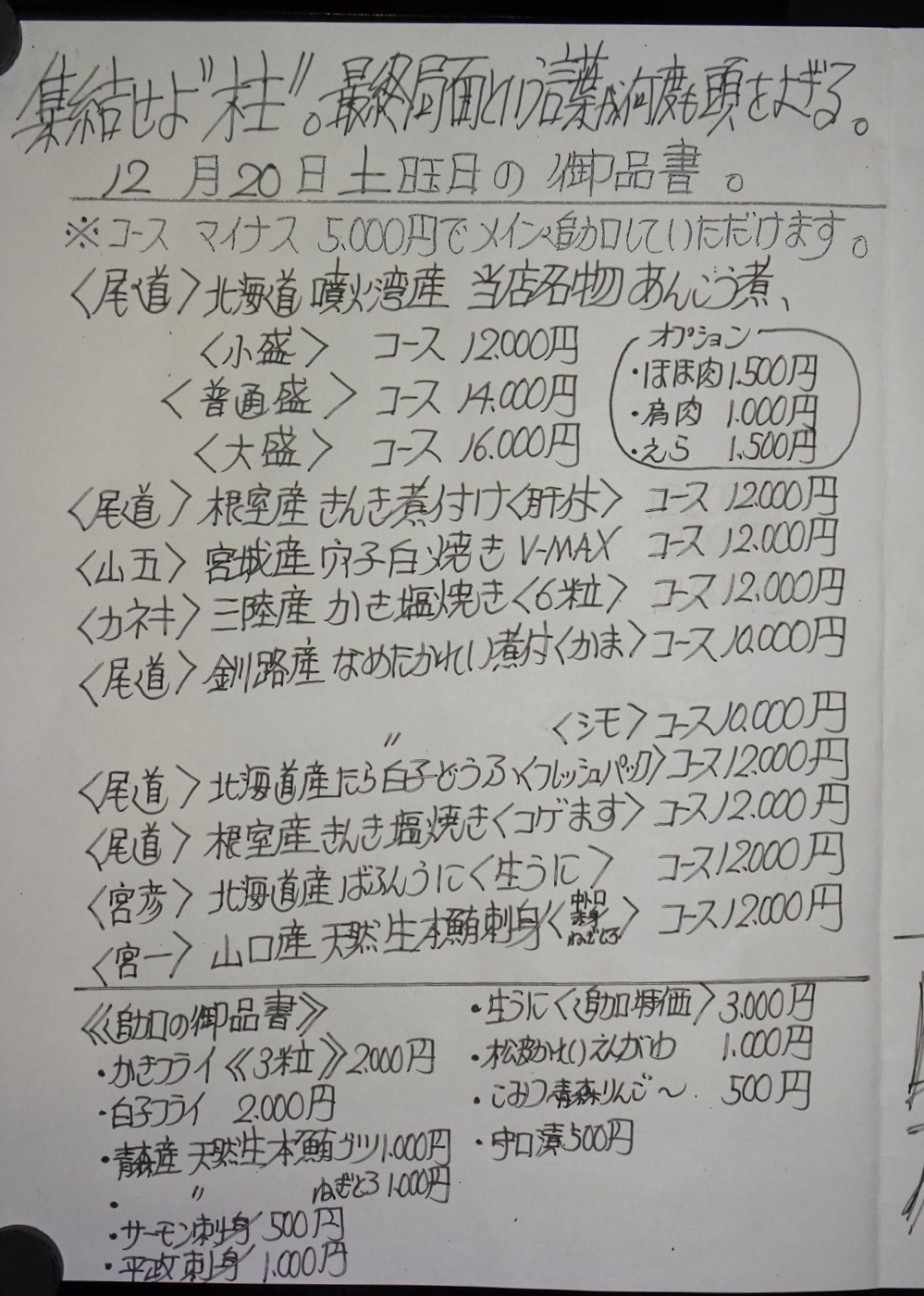 集結せよ"柱"。最終局面という言葉が何度も頭をよぎる。
12月20日土曜日の御品書。
※コース マイナス 5.000円でメイン追加していただけます。
〈尾道〉北海道噴火湾産 当店名物あんこう煮、
〈小盛〉 コース 12.000円
〈普通盛〉 コース 14.000円
〈大盛〉 コース 16.000円
オプション
・ほほ肉 1.500円
・肩肉 1.000円
・えら 1.500円
〈尾道〉根室産 きんき煮付け〈肝付〉 コース 12.000円
〈山五〉宮城産 穴子白焼き V-MAX コース 12.000円
〈カネキ〉三陸産 かき塩焼き〈6粒〉 コース 12.000円
〈尾道〉釧路産 なめたかれい煮付〈かま〉コース 10.000円
〃 〈シモ〉コース 10.000円
〈尾道〉北海道産たら白子どうふ〈フレッシュパック〉コース 12.000円
〈尾道〉根室産きんき塩焼き〈コゲます〉コース 12.000円
〈宮彦〉北海道産ばふんうに〈生うに〉 コース 12.000円
〈宮一〉山口産 天然生本鮪刺身〈中トロ 赤身 ねぎとろ〉 コース 12.000円
《追加の御品書》
・かきフライ《3粒》2.000円
・白子フライ 2.000円
・青森産 天然生本鮪ブツ 1.000円
・ 〃 ねぎとろ 1.000円
・サーモン刺身 500円
・平政刺身 1.000円
・生うに〈追加特価〉3.000円
・松皮かれいえんがわ 1.000円
・こみつ青森りんご〜 500円
・辛口漬 500円